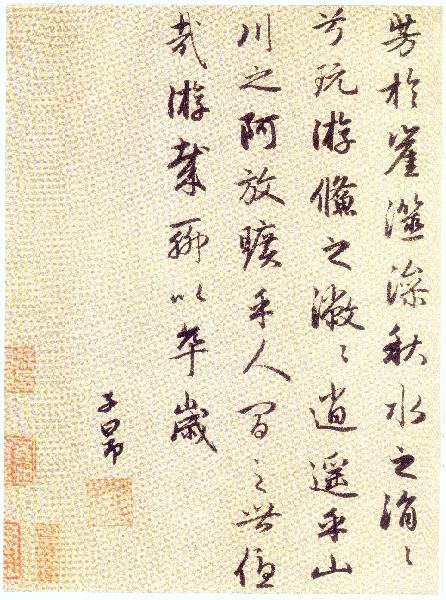 芳於崖澨澡秋水之涓〻
兮玩游鯈之潎〻逍遥乎山
川之阿放曠乎人間之世優
哉游哉聊以卒歲
子昂